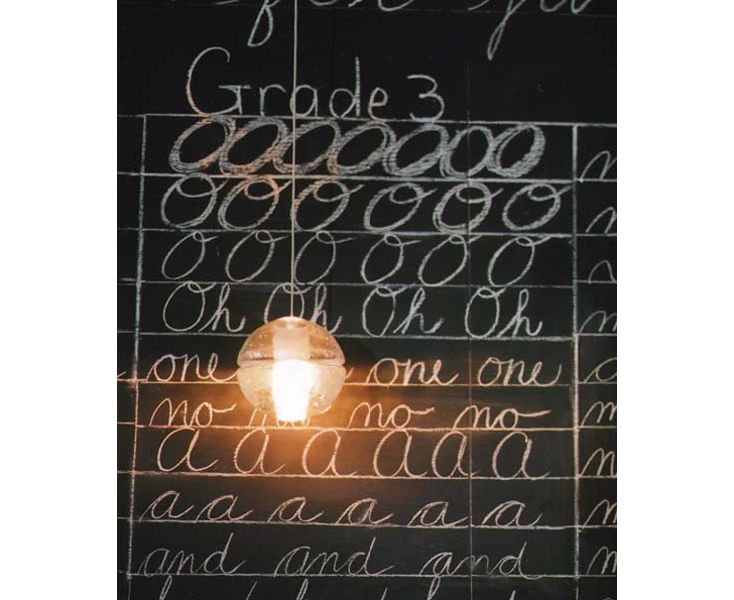 Grade 3
O O O O O O O
O O O O O O
O O O O O O
Oh Oh Oh Oh
one one one
no no no no
a a a a a a
a a a a a a
and and and